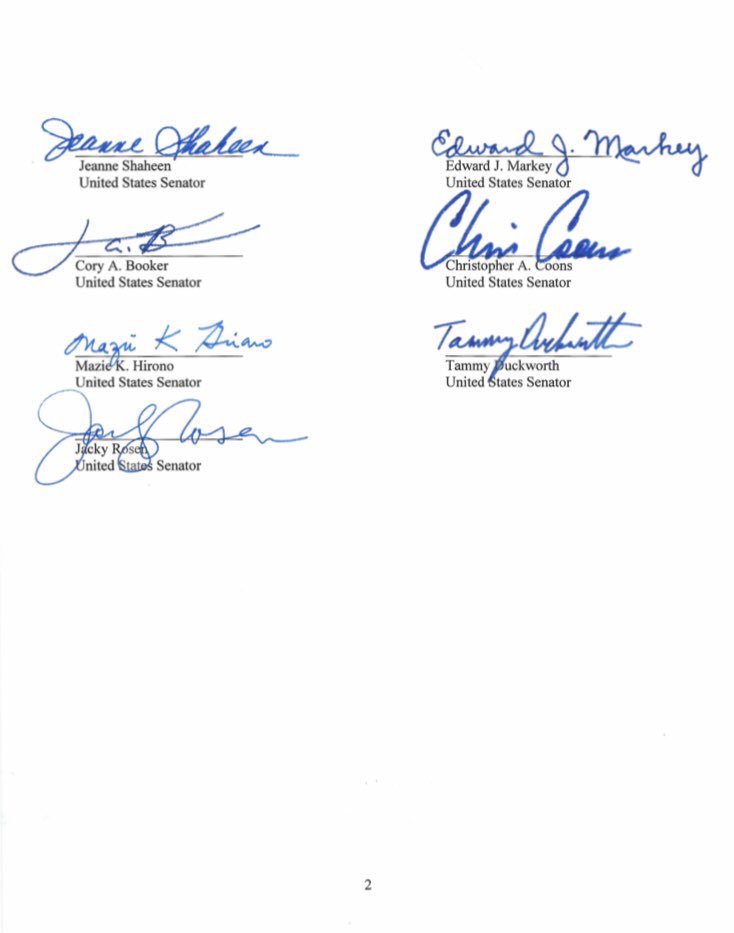 Jeanne Shaheen
Jeanne Shaheen
United States Senator
Edward J. Markey
Edward J. Markey
United States Senator
C A. B
Cory A. Booker
United States Senator
Chris Coons
Christopher A. Coons
United States Senator
Mazie K Hirono
Mazie K. Hirono
United States Senator
Tammy Duckworth
Tammy Duckworth
United States Senator
Jacky Rosen
Jacky Rosen
United States Senator
2